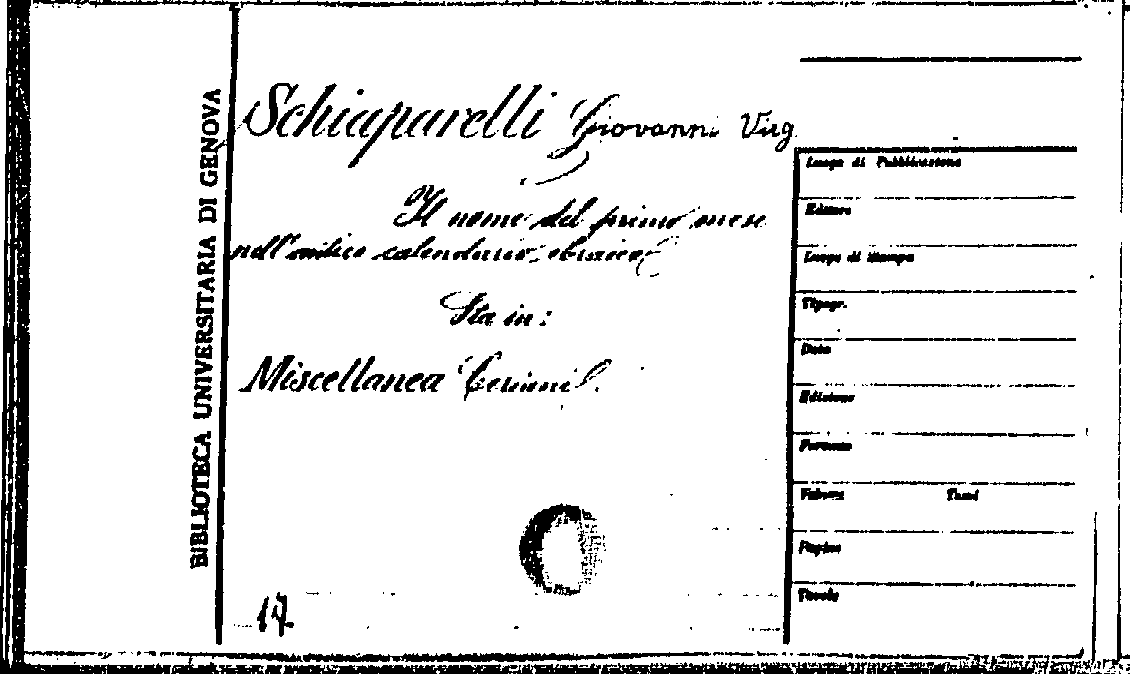 BIBLIOTECA UNIVERSITARIA DI GENOVA
Schiaparelli Giovanni Virg.
Il nome del primo mese
nell'antico calendario ebraico
Sta in:
Miscellanea Ceriani.
17
Luogo di Pubblicazione
Editore
Luogo di stampa
Tipogr.
Data
Edizione
Formato
Volume Tomi
Pagine
Tavole